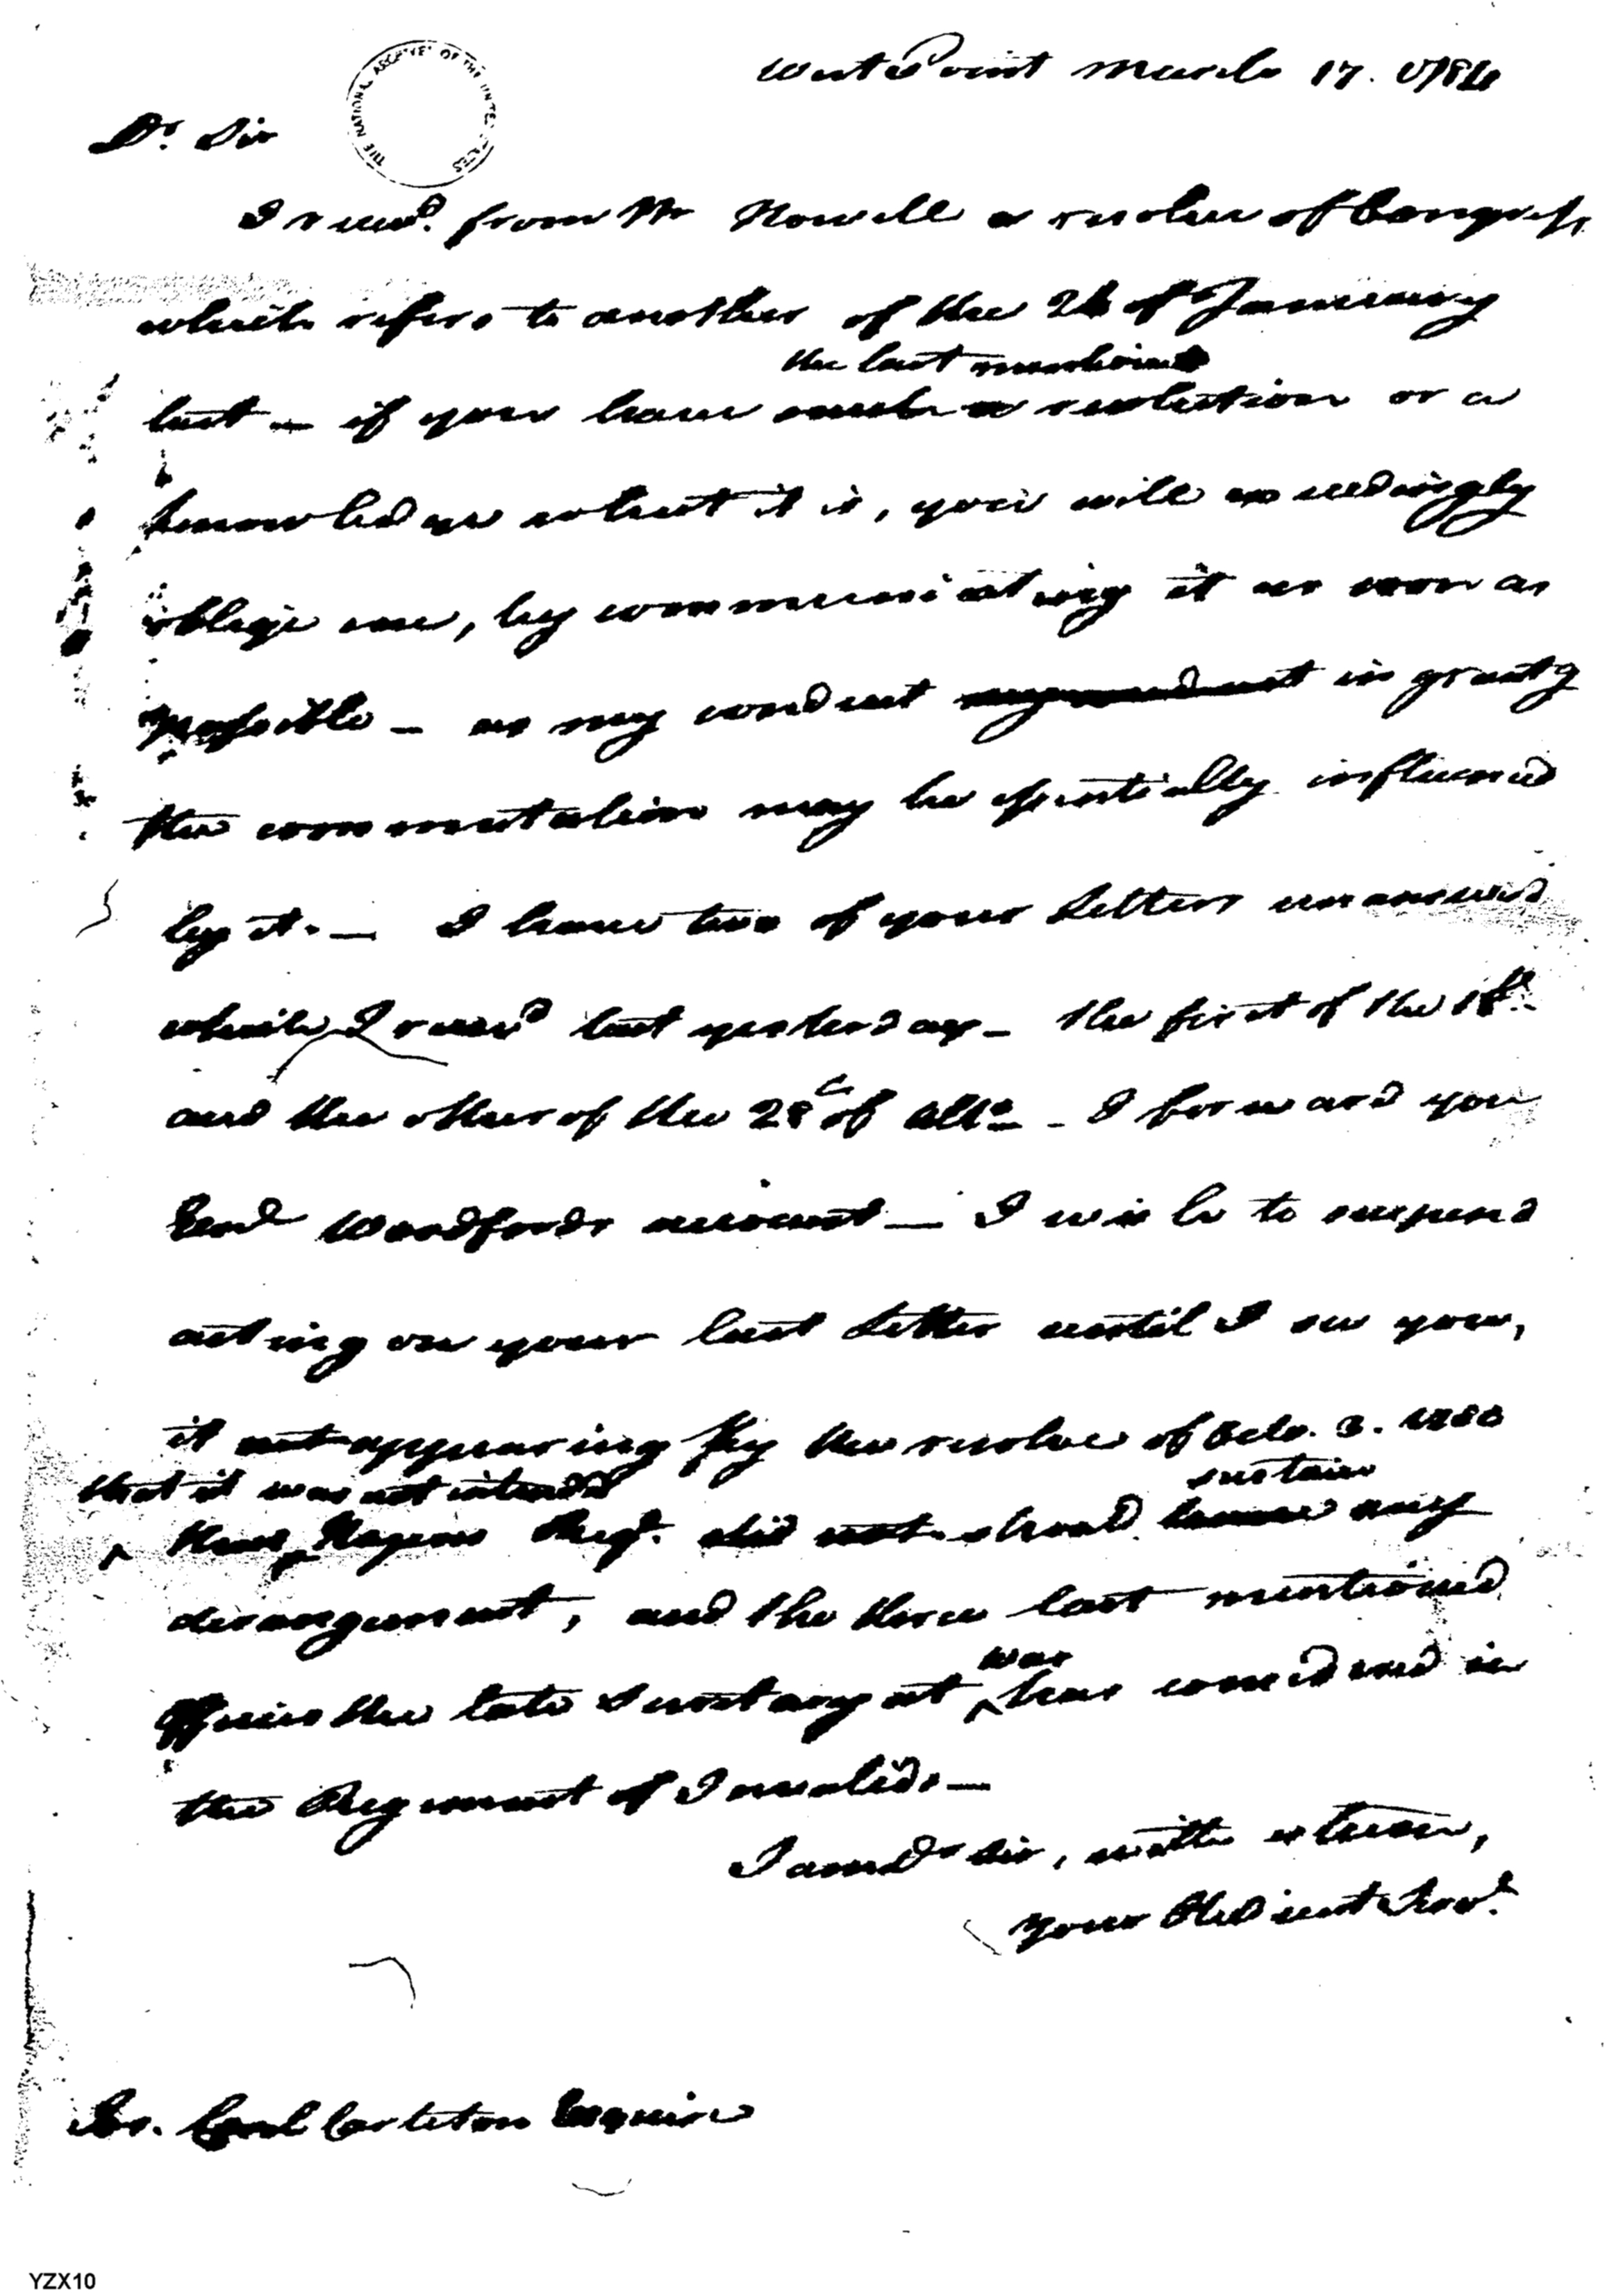 West Point March 17. 1784
THE NATIONAL ARCHIVES OF THE UNITED STATES
Dr. Sir
I recd. from Mr Howell a resolve of Congress
which refers to another of the 26 of January
the last mentioned
last – if you have such a resolution or a
knowledge what it is, you will exceedingly
oblige me, by communicating it as soon as
possible – as my conduct in grantg
the commutation may be essentially influenced
by it. – I have two of your Letters unanswered
which I recd last yesterday – the first of the 18th
and the other of the 28th of Ulto – I forward you
Genl Woodfords account – I wish to suspend
acting on your last Letter until I see you,
it not appearing by the resolve of Octo. 3. 1780
that it was not intended
sustain
Hazens Regt. did not should have any
derangement, and the three last mentioned
war
officers the late Secretary at has considered in
the Regiment of Invalids –
I am Dr Sir, with esteem,
your Obedient Servt.
Jos. Carleton Esquire
YZX10